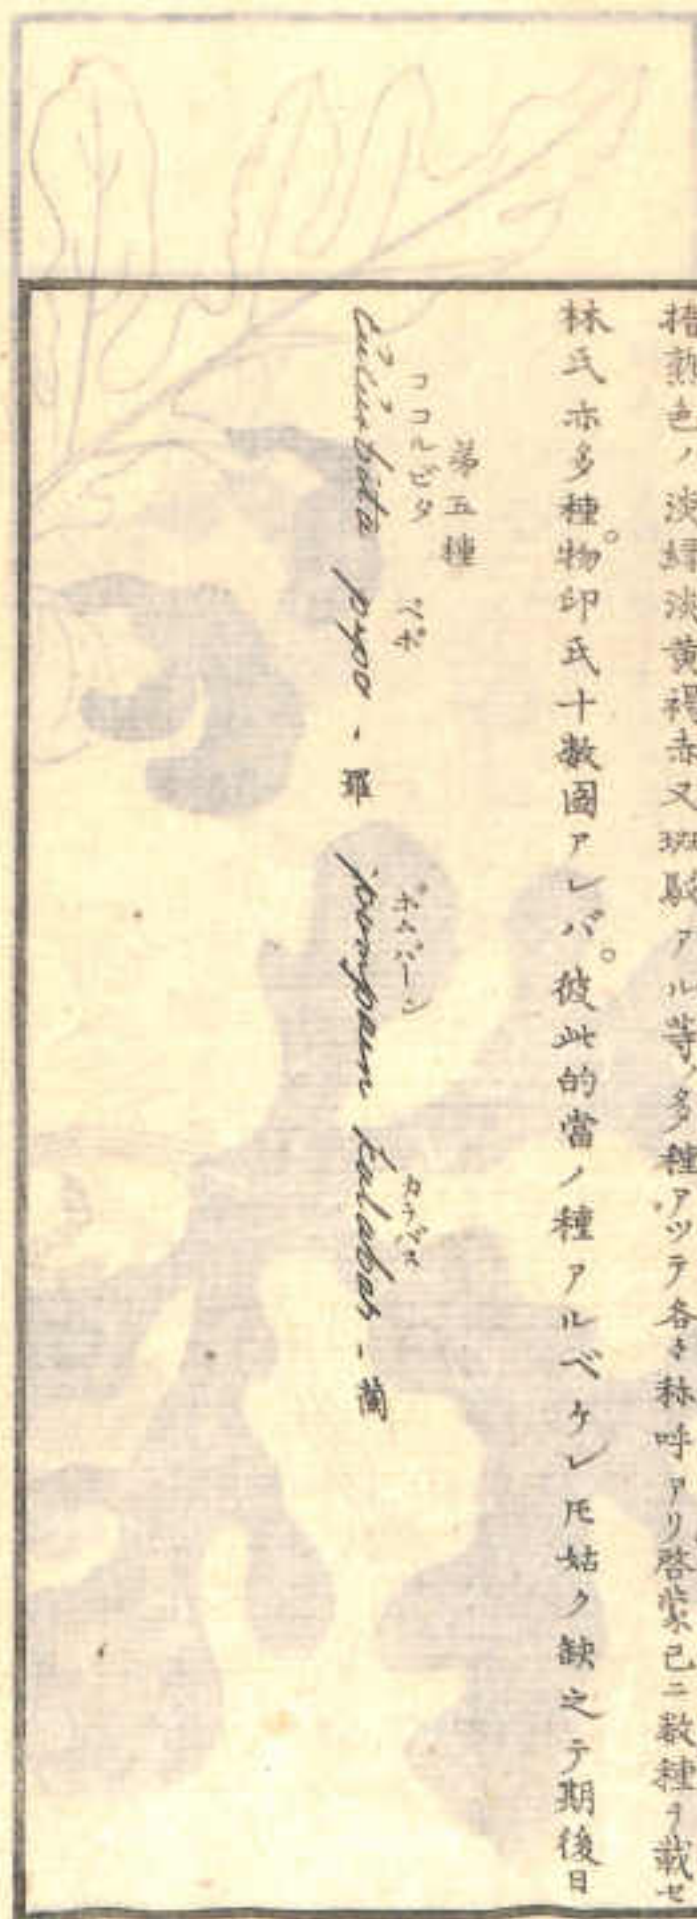 熟色ノ淡緑淡黄褐赤又斑駁アル等ノ多種アツテ各〻称呼アリ啓蒙已ニ数種ヲ載セ
林氏亦多種。物印氏十数図アレバ。彼此的當ノ種アルベケレ𪜈姑ク缺之テ期後日
第五種
ココルビタ ペポ ポムパーン カラバス
Cucurbita pepo . 羅 pompoen kalabas . 蘭